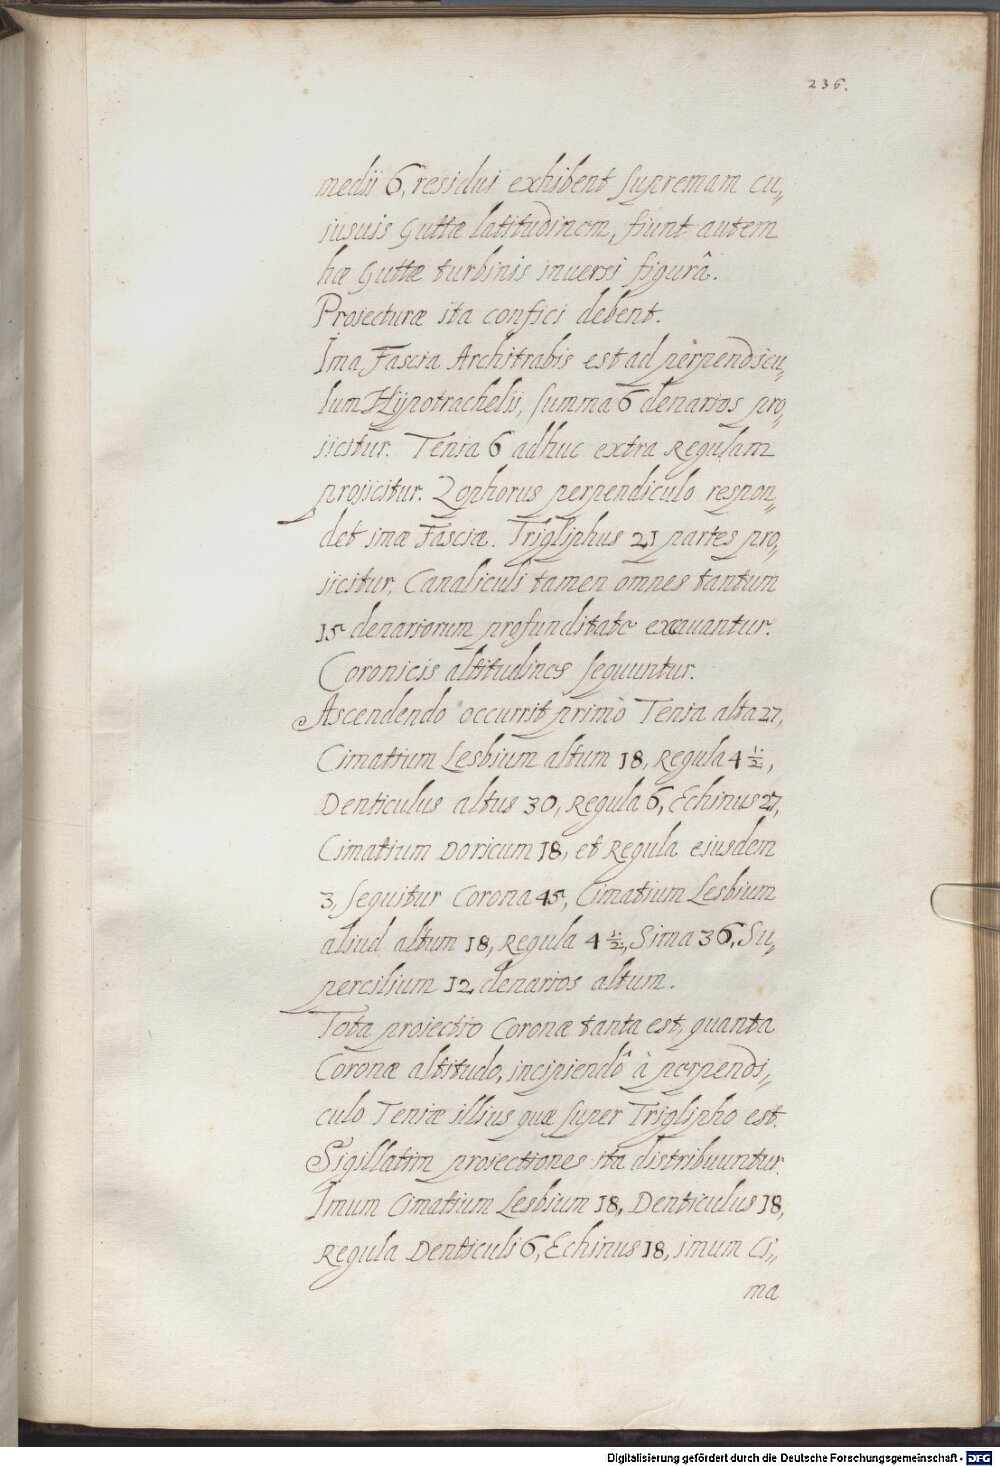 236.
medii 6, residui exhibent supremam cu„
iusuis Guttæ latitudinem, fiunt autem
hæ Guttæ turbinis inuersi figurâ.
Proiecturæ ita confici debent.
Ima Fascia Architrabis est ad perpendicu„
lum Hÿpotrachelii, summa 6 denarios pro„
iicitur. Tenia 6 adhuc extra Regulam
proiicitur. Zophorus perpendiculo respon„
det imæ Fasciæ. Trigliphus 21 partes pro„
iicitur, Canaliculi tamen omnes tantum
15 denariorum profunditate excauantur.
Coronicis altitudines sequuntur.
Ascendendo occurrit primò Tenia alta 27,
Cimatium Lesbium altum 18, Regula 4 1/2,
Denticulus altus 30, Regula 6, Echinus 27,
Cimatium Doricum 18, et Regula eiusdem
3, sequitur Corona 45, Cimatium Lesbium
aliud altum 18, Regula 4 1/2, Sima 36, Su„
percilium 12 denarios altum.
Tota proiectio Coronæ tanta est, quanta
Coronæ altitudo, incipiendô à perpendi„
culo Teniæ illius quæ super Trigliphο est.
Sigillatim proiectiones ita distribuuntur.
Imum Cimatium Lesbium 18, Denticulus 18,
Regula Denticuli 6, Echinus 18, imum Ci„
ma
Digitalisierung gefördert durch die Deutsche Forschungsgemeinschaft - DFG